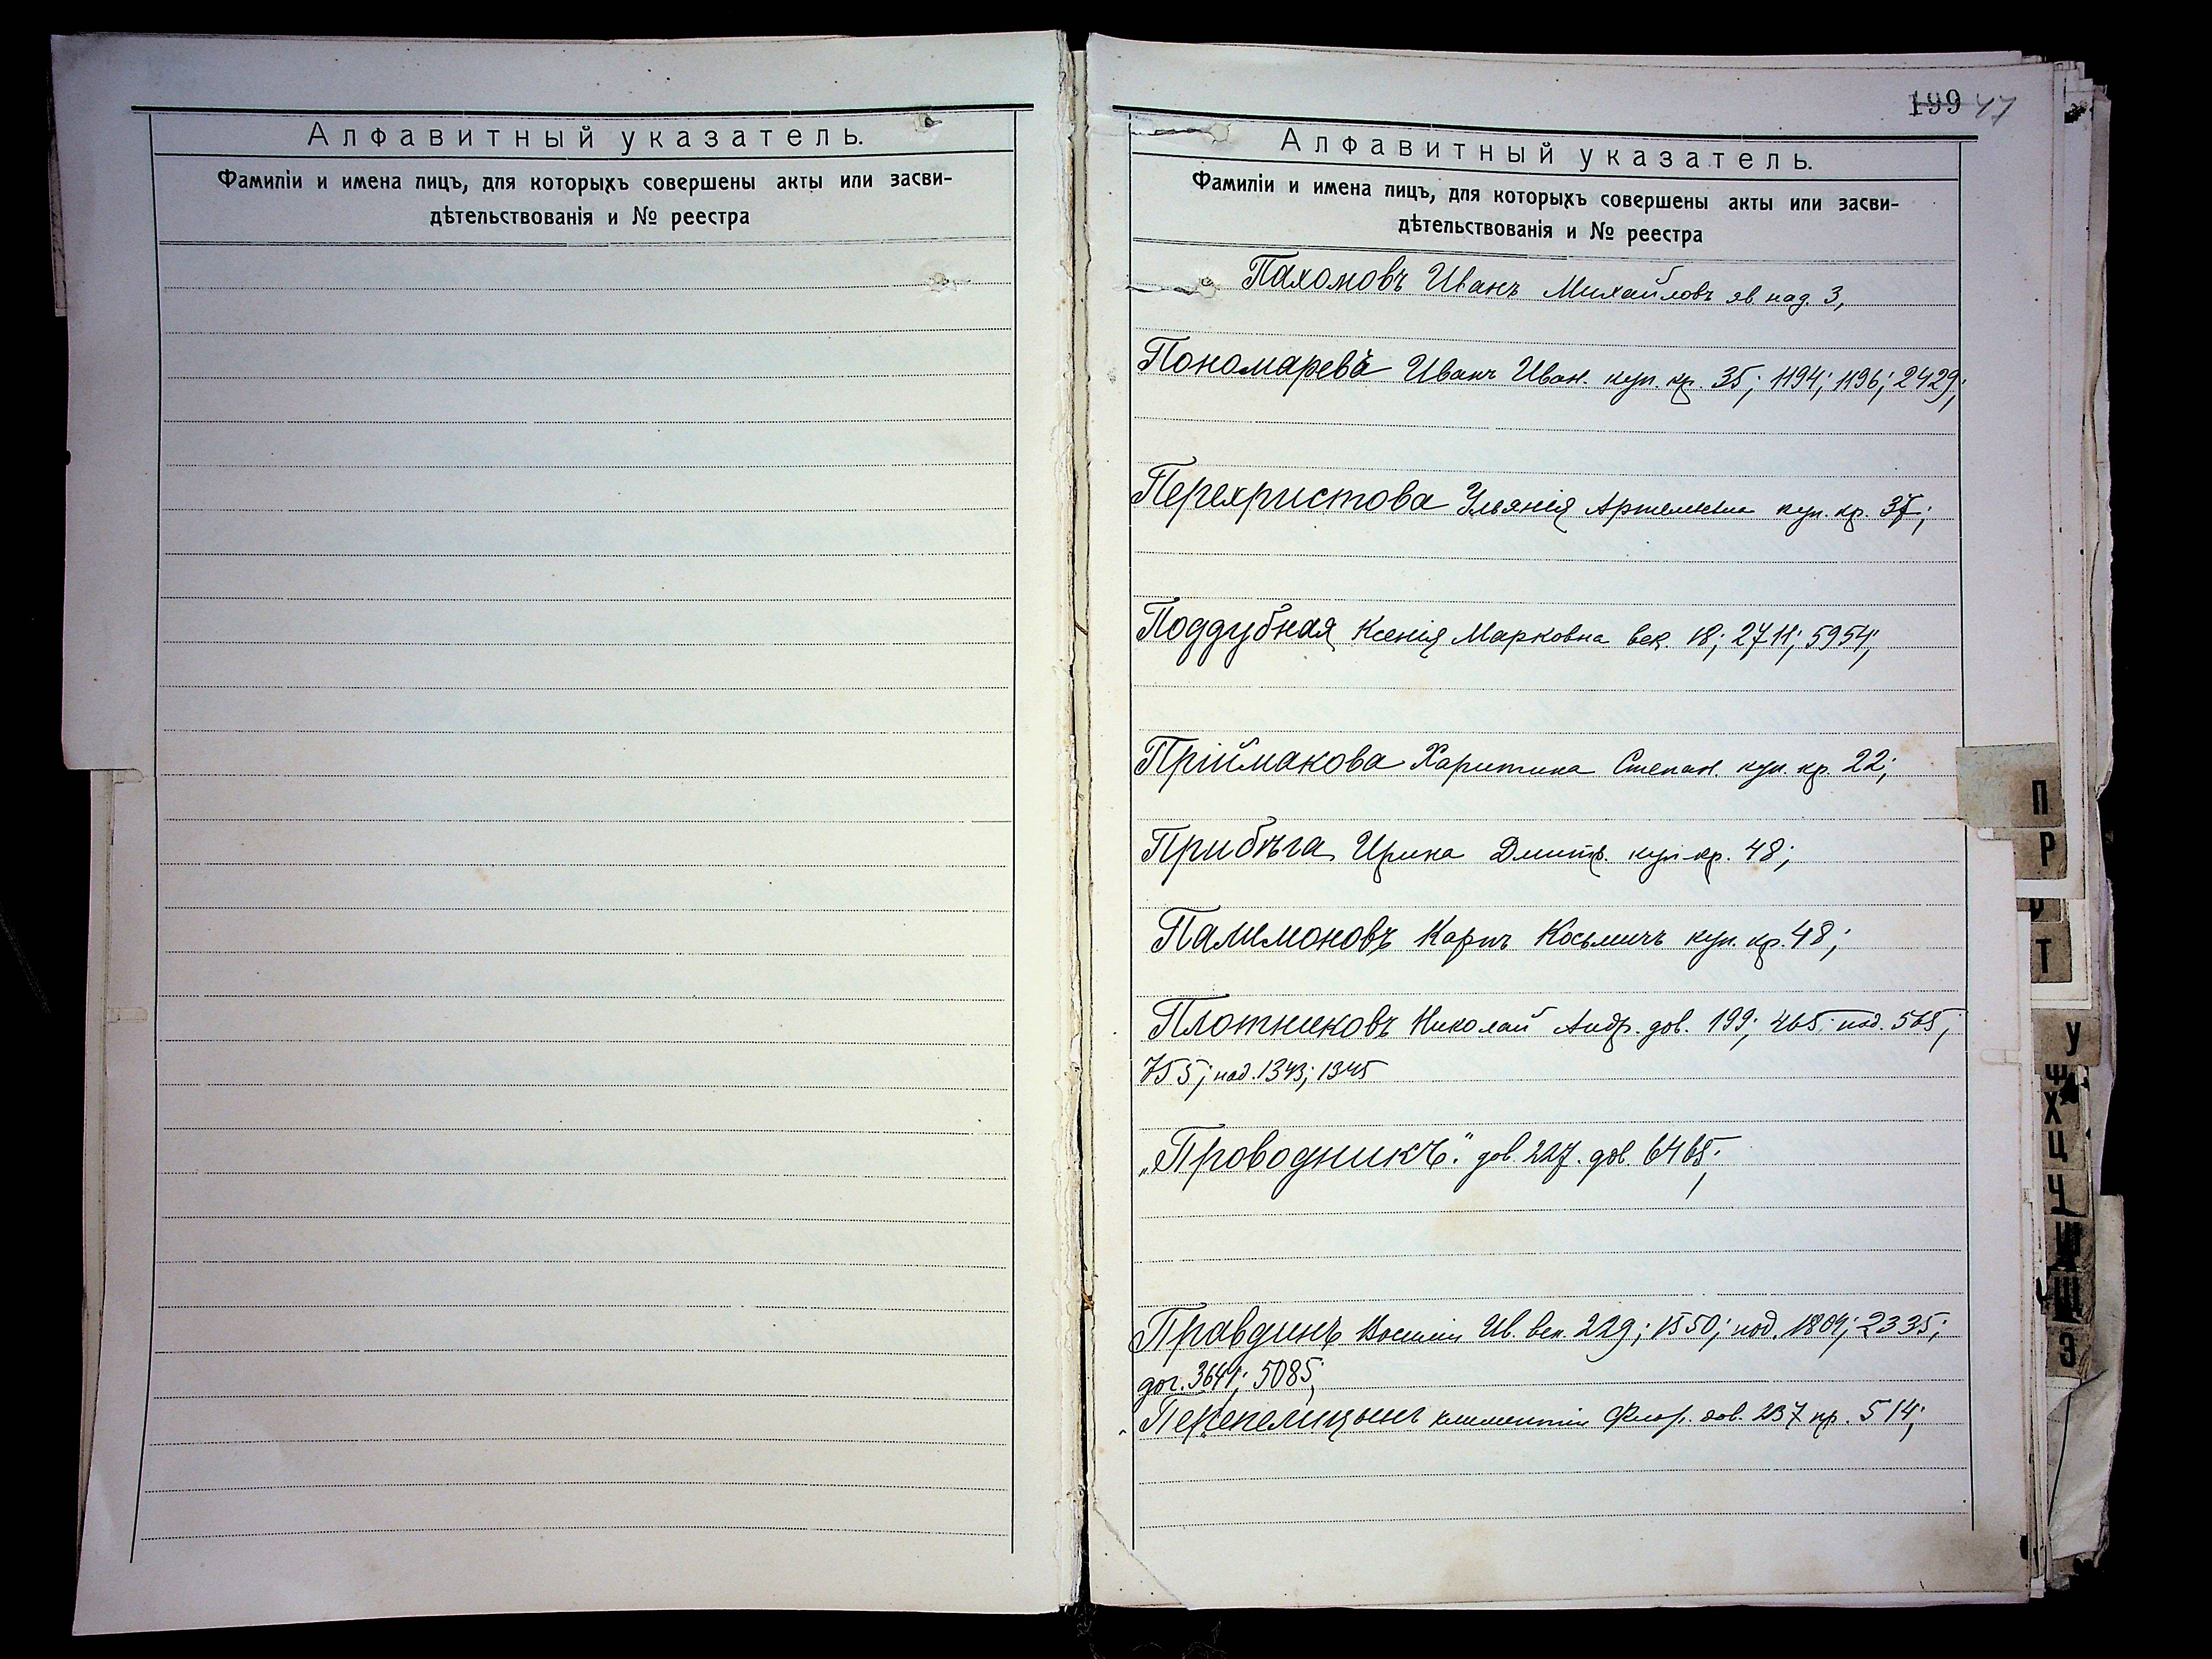 Алфавитный указатель.
Фамиліи и имена лицъ, для которыхъ совершены акты или засви-
дѣтельствованія и № реестра
199 47
Алфавитный указатель.
Фамиліи и имена лицъ, для которыхъ совершены акты или засви-
дѣтельствованія и № реестра
Пахомовъ Иванъ Михайловъ яв. над. 3,
Пономаревъ Иванъ Иван. куп. кр. 35; 1194; 1196; 2429;
Перехристова Ульянія куп. кр. 37;
Поддубная Ксенія Марковна век. 18; 2711; 5954;
Пріймакова Харитина Степан. куп. кр. 22;
Прибѣга Ирина Дмитр. куп. кр. 48;
Палимоновъ Карпъ Косьмичъ куп. кр. 48;
Плотниковъ Николай Андр. дов. 199; 465; под. 565;
755; над. 1343; 1345
„Проводникъ." дов. 227. дов. 6465;
Правдинъ Ив. век. 229; 1550; под. 1809; 2335;
дог. 3641; 5085;
Перепелицынъ Климентій дов. 237 кр. 514;
П
Р
Т
У
Ф
Х
Ц
Ч
Щ
Э